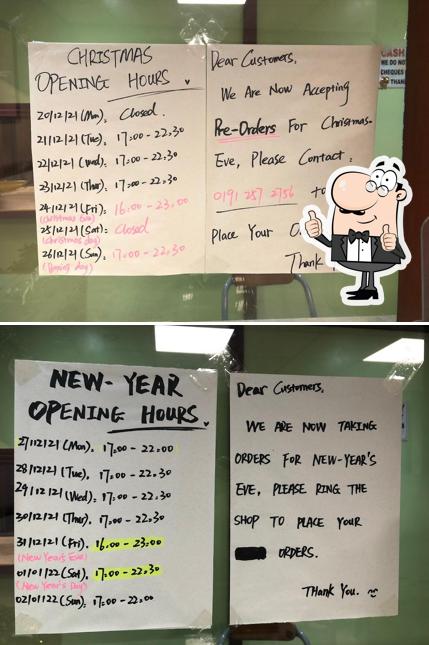 CHRISTMAS
OPENING HOURS.
20/12/21 (Mon), Closed.
21/12/21 (Tue), 17:00 - 22:30
22/12/21 (Wed), 17:00 - 22:30
23/12/21 (Thur), 17:00 - 22:30
24/12/21 (Fri), 16:00 - 23:00
(Christmas Eve)
25/12/21 (Sat): Closed
(Christmas day)
26/12/21 (Sun), 17:00 - 22:30
(Boxing day)
Dear Customers,
We Are Now Accepting
Pre-Orders For Christmas-
Eve, Please Contact:
0191 257 2756 to
Place Your
Thank
CASH
WE DO NO
CHEQUES
THAN
NEW-YEAR
OPENING HOURS.
27/12/21 (Mon), 17:00 - 22:00
28/12/21 (Tue), 17:00 - 22:30
29/12/21 (Wed), 17:00 - 22:30
30/12/21 (Thur), 17:00 - 22:30
31/12/21 (Fri), 16:00 - 23:00
(New Years Eve)
01/01/22 (Sat), 17:00 - 22:30
(New Year's Day)
02/01/22 (Sun), 17:00 - 22:00
Dear Customers,
WE ARE NOW TAKING
ORDERS FOR NEW-YEAR'S
EVE, PLEASE RING THE
SHOP TO PLACE YOUR
ORDERS.
THANK YOU.